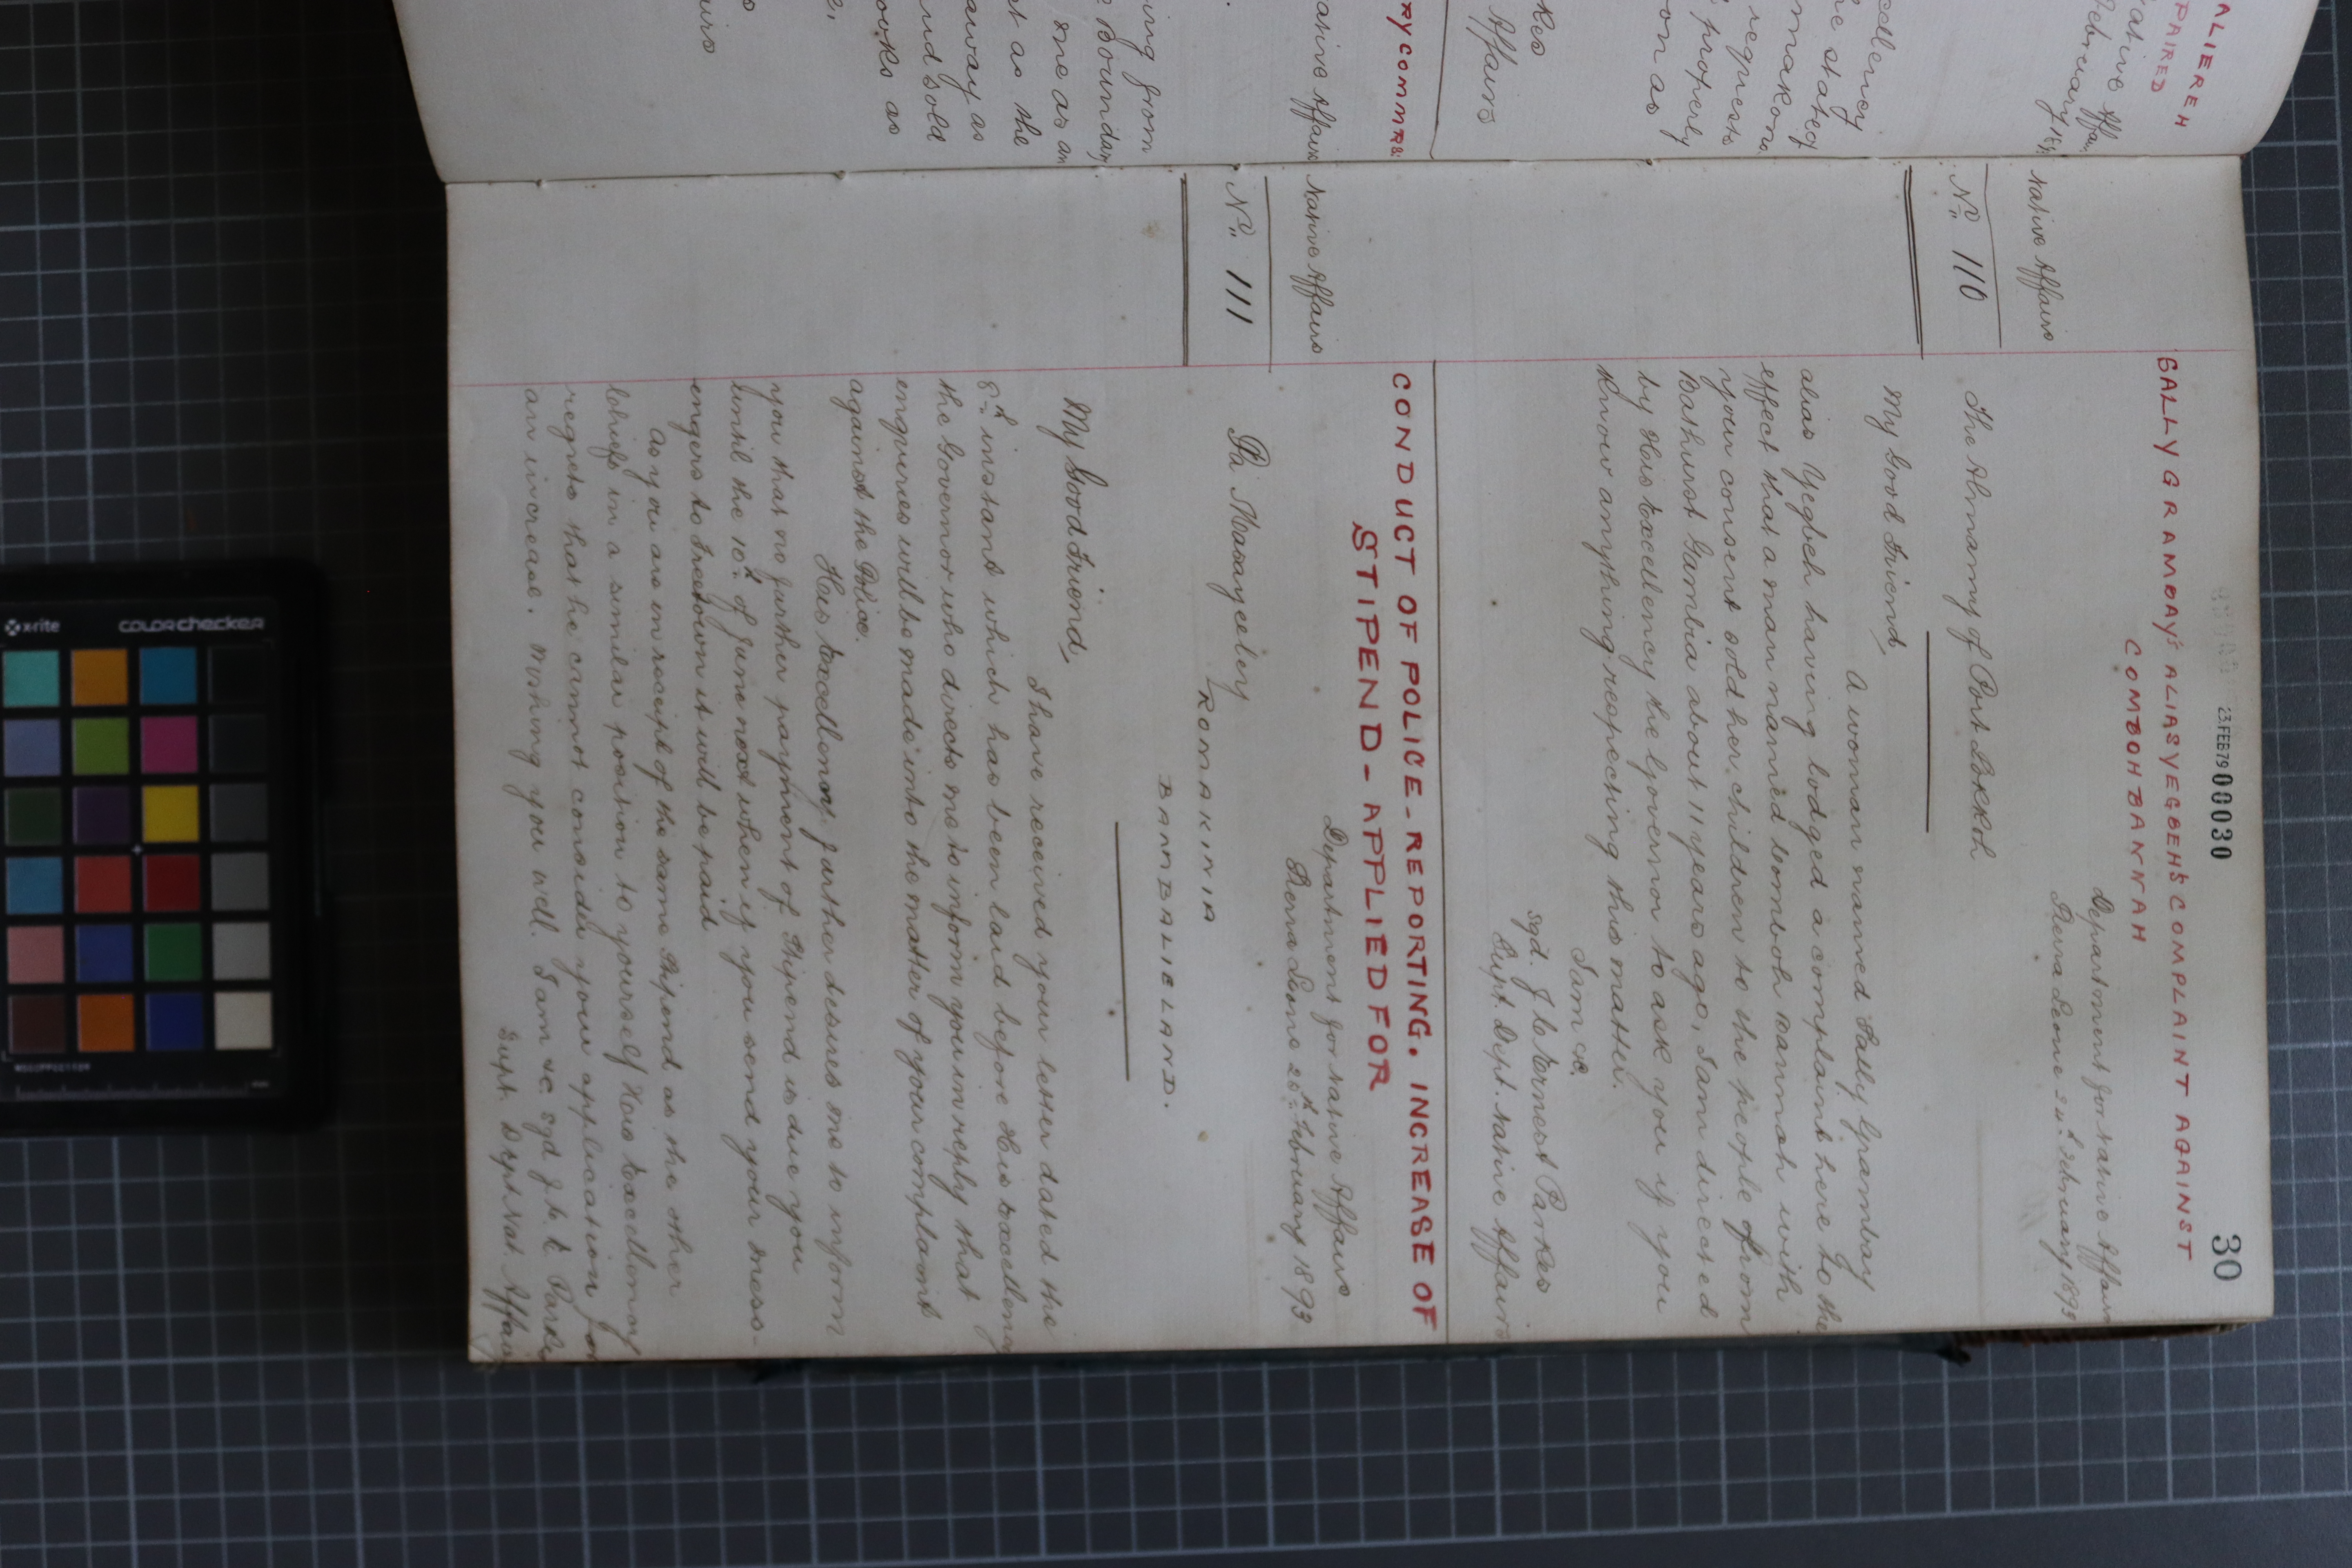 30
23.FEB79 00030
SALLY GRAMBAY'S ALIAS YEGBEH'S COMPLAINT AGAINST
COMBOH BANNAH
Native Affairs
Department for Native Affairs
Sierra Leone 24th February 1893
No. 110
The Almamy of Port Lokkoh
My Good Friend,
A woman named Sally Grambay
alias Yegbeh having lodged a complaint here to the
effect that a man named Comboh Bannah with
your consent sold her children to the people from
Bathurst Gambia about 11 years ago, I am directed
by His Excellency the Governor to ask you if you
know anything respecting this matter.
I am &c.
Sgd. J. C. Ernest Parkes
Supt. Dept. Native Affairs
CONDUCT OF POLICE - REPORTING. INCREASE OF
STIPEND - APPLIED FOR
Native Affairs
Department for Native Affairs
Sierra Leone 25th February 1893
No. 111
Pa Masayeeley
ROMAKINIA
BANBALIELAND.
My Good Friend,
I have received your letter dated the
8th instant which has been laid before His Excellency
the Governor who directs me to inform you in reply that
enquiries will be made into the matter of your complaint
against the Police.
His Excellency further desires me to inform
you that no further payment of Stipend is due you
until the 10th of June next when if you send your mess-
engers to Freetown it will be paid
As you are in receipt of the same Stipend as the other
Chiefs in a similar position to yourself His Excellency
regrets that he cannot consider your application for
an increase. Wishing you well. I am &c. Sgd J. C. E. Parkes
Supt. Dept Nat. Affairs
ALIEREH
PAIRED
RY COMMRS
Native Affairs
xrite
COLORchecker